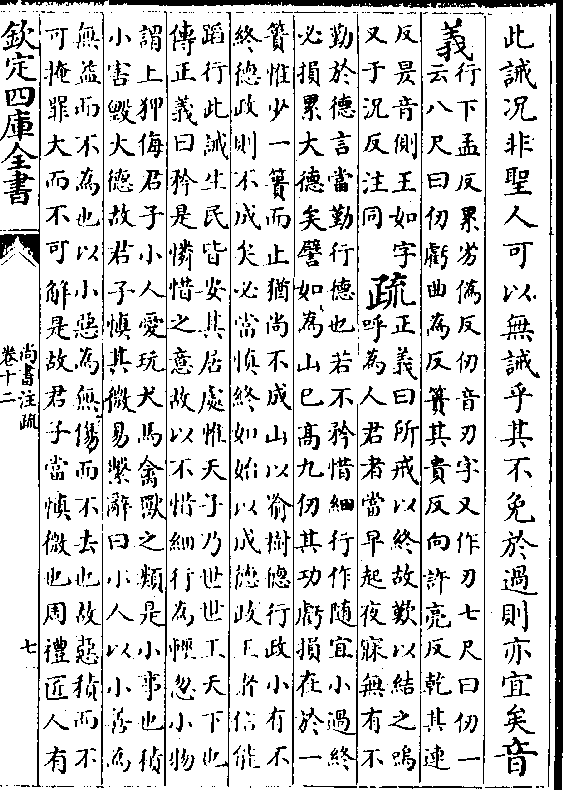 此誡况非聖人可以無誡乎其不免於過則亦宜矣音
義
行下孟反累劣偽反仞音刃字又作刃七尺曰仞一
云八尺曰仞虧曲為反簣其貴反向許亮反乾其連
反昃音側王如字
又于況反注同
疏
正義曰所戒以終故歎以結之嗚
呼為人君者當早起夜寐無有不
勤於德言當勤行德也若不矜惜細行作隨宜小過終
必損累大德矣譬如為山已髙九仞其功虧損在於一
簣惟少一簣而止猶尚不成山以喻樹德行政小有不
終德政則不成矣必當慎終如始以成德政王者信能
蹈行此誡生民皆安其居處惟天子乃世世王天下也
傳正義曰矜是憐惜之意故以不惜細行為輕忽小物
謂上狎侮君子小人愛玩犬馬禽獸之類是小事也積
小害毀大德故君子慎其微易繫辭曰小人以小善為
無益而不為也以小惡為無傷而不去也故惡積而不
可掩罪大而不可解是故君子當慎微也周禮匠人有
欽定四庫全書
尚書注疏
卷十二
七